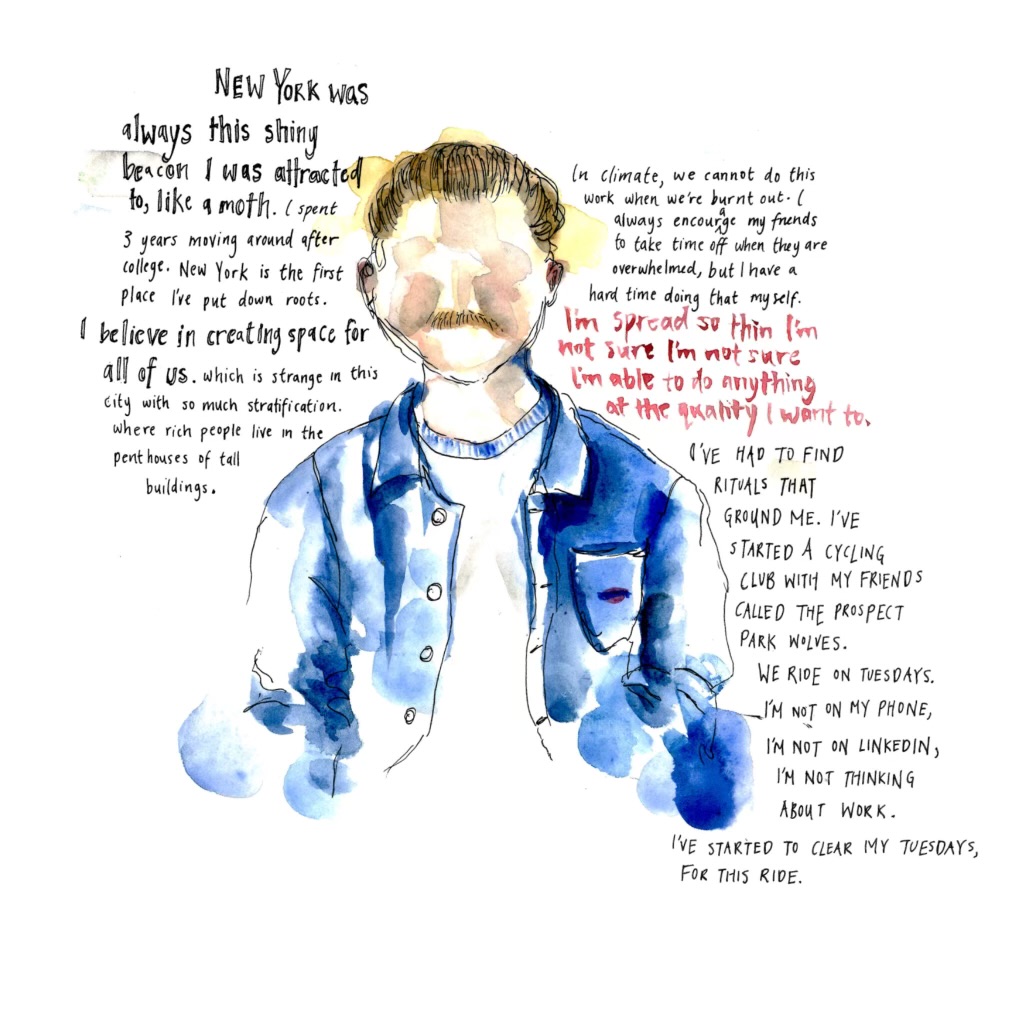 NEW YORK WAS
always this shiny
beacon I was attracted
to, like a moth. I spent
3 years moving around after
college. New York is the first
place I've put down roots.
I believe in creating space for
all of us. which is strange in this
city with so much stratification.
where rich people live in the
penthouses of tall
buildings.
In climate, we cannot do this
work when we're burnt out. I
always encourage my friends
to take time off when they are
overwhelmed, but I have a
hard time doing that myself.
I'm spread so thin I'm
not sure I'm not sure
I'm able to do anything
at the quality I want to.
I'VE HAD TO FIND
RITUALS THAT
GROUND ME. I'VE
STARTED A CYCLING
CLUB WITH MY FRIENDS
CALLED THE PROSPECT
PARK WOLVES.
WE RIDE ON TUESDAYS.
I'M NOT ON MY PHONE,
I'M NOT ON LINKEDIN,
I'M NOT THINKING
ABOUT WORK.
I'VE STARTED TO CLEAR MY TUESDAYS,
FOR THIS RIDE.